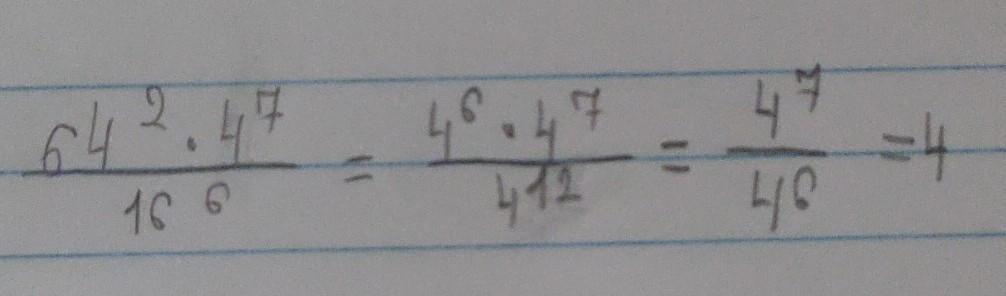 64² · 4⁷ / 16⁶ = 4⁶ · 4⁷ / 4¹² = 4⁷ / 4⁶ = 4